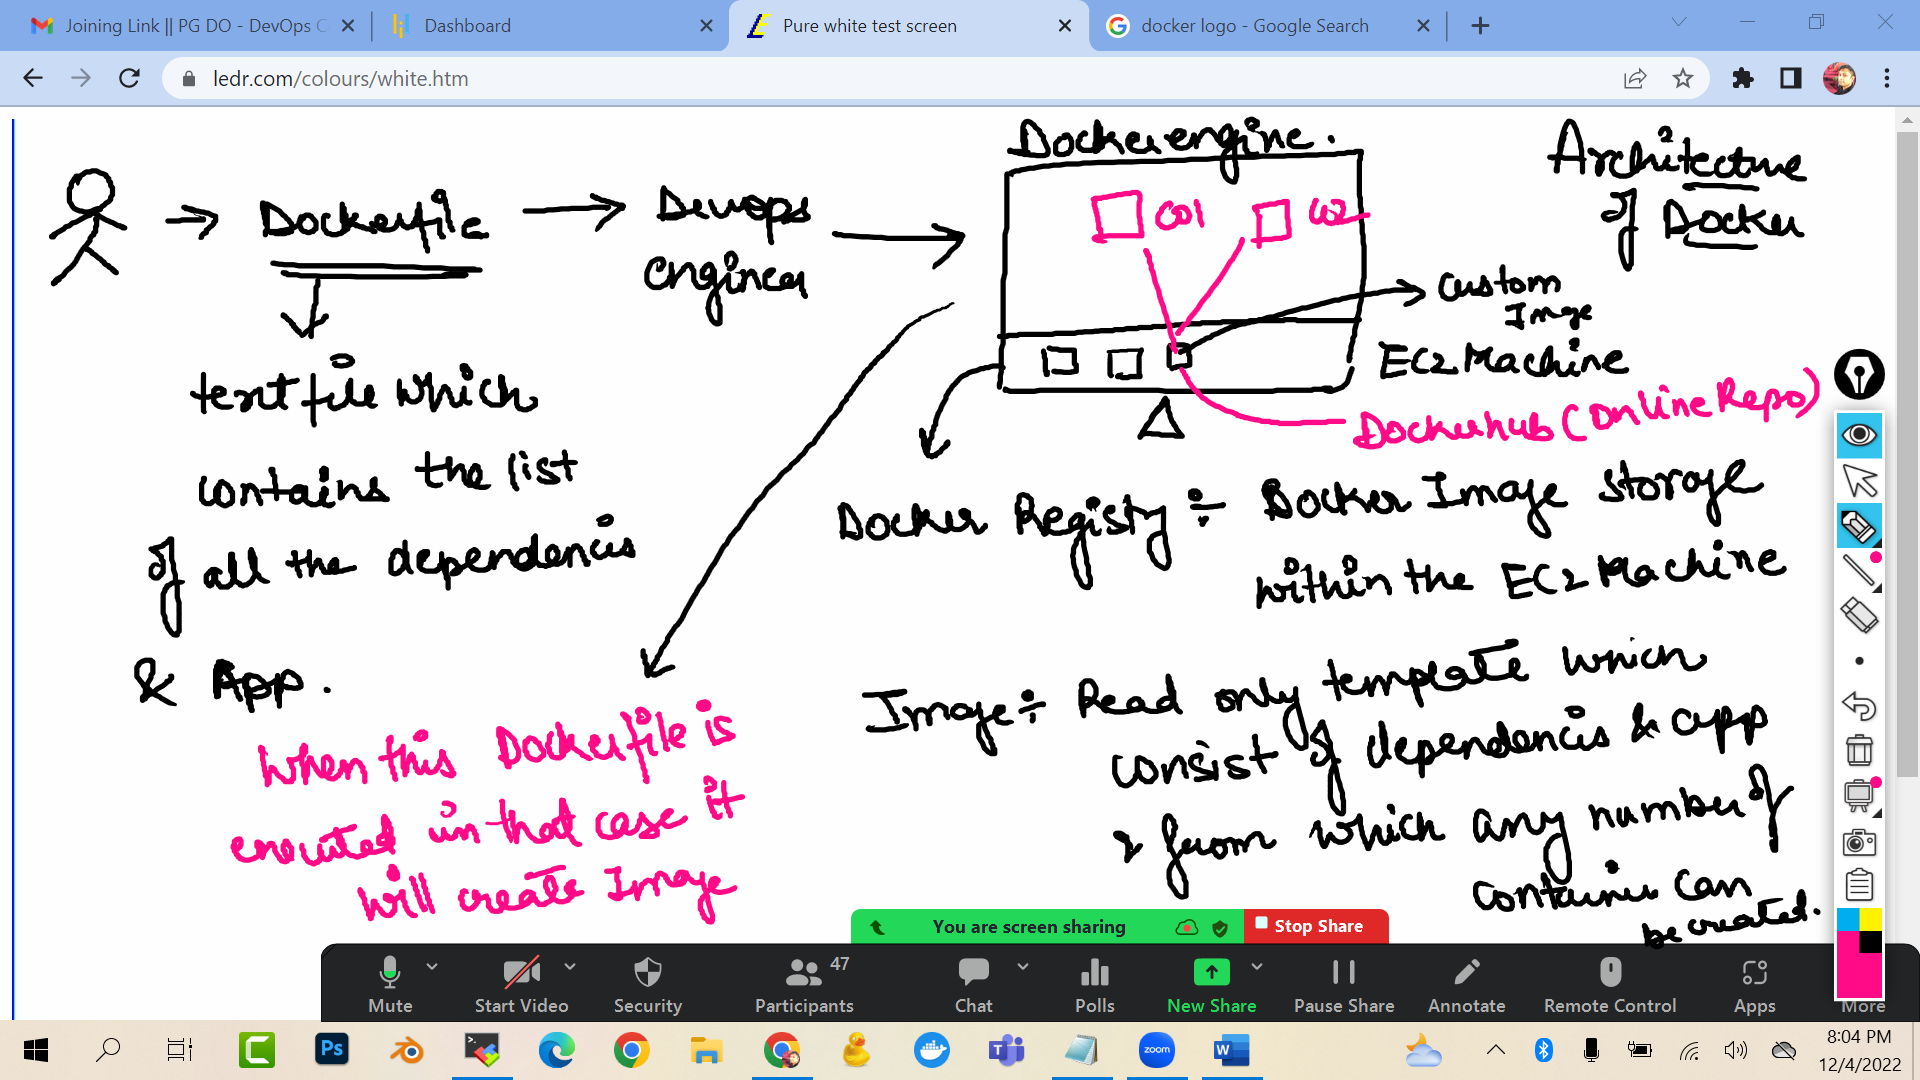 Joining Link || PG DO - DevOps C
Dashboard
Pure white test screen
docker logo - Google Search
ledr.com/colours/white.htm
Docker engine.
Architecture
of Docker
Dockerfile
Devops
engineer
CO1
CO2
Custom
Image
EC2 Machine
Dockerhub (Online Repo)
text file which
contains the list
of all the dependencies
& App.
When this Dockerfile is
executed in that case it
will create Image
Docker Registry ÷ Docker Image storage
within the EC2 Machine
Image ÷ Read only template which
consist of dependencies & app
& from which any number of
containers can
be created.
You are screen sharing
Stop Share
47
Mute
Start Video
Security
Participants
Chat
Polls
New Share
Pause Share
Annotate
Remote Control
Apps
More
Ps
T
zoom
W
8:04 PM
12/4/2022